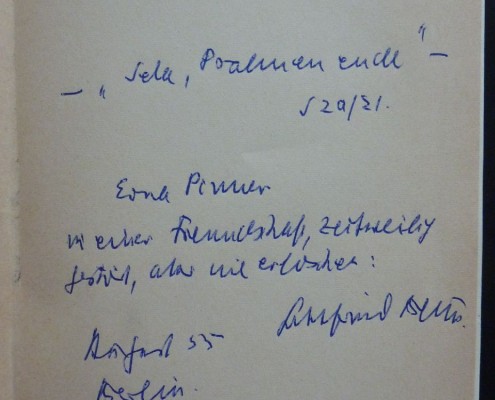 — „Sela, Psalmenende" —
S 20/21.
Erna Pinner
in einer Freundschaft, zeitweilig
gestört, aber nie erloschen:
Gottfried Benn.
August 55
Berlin.